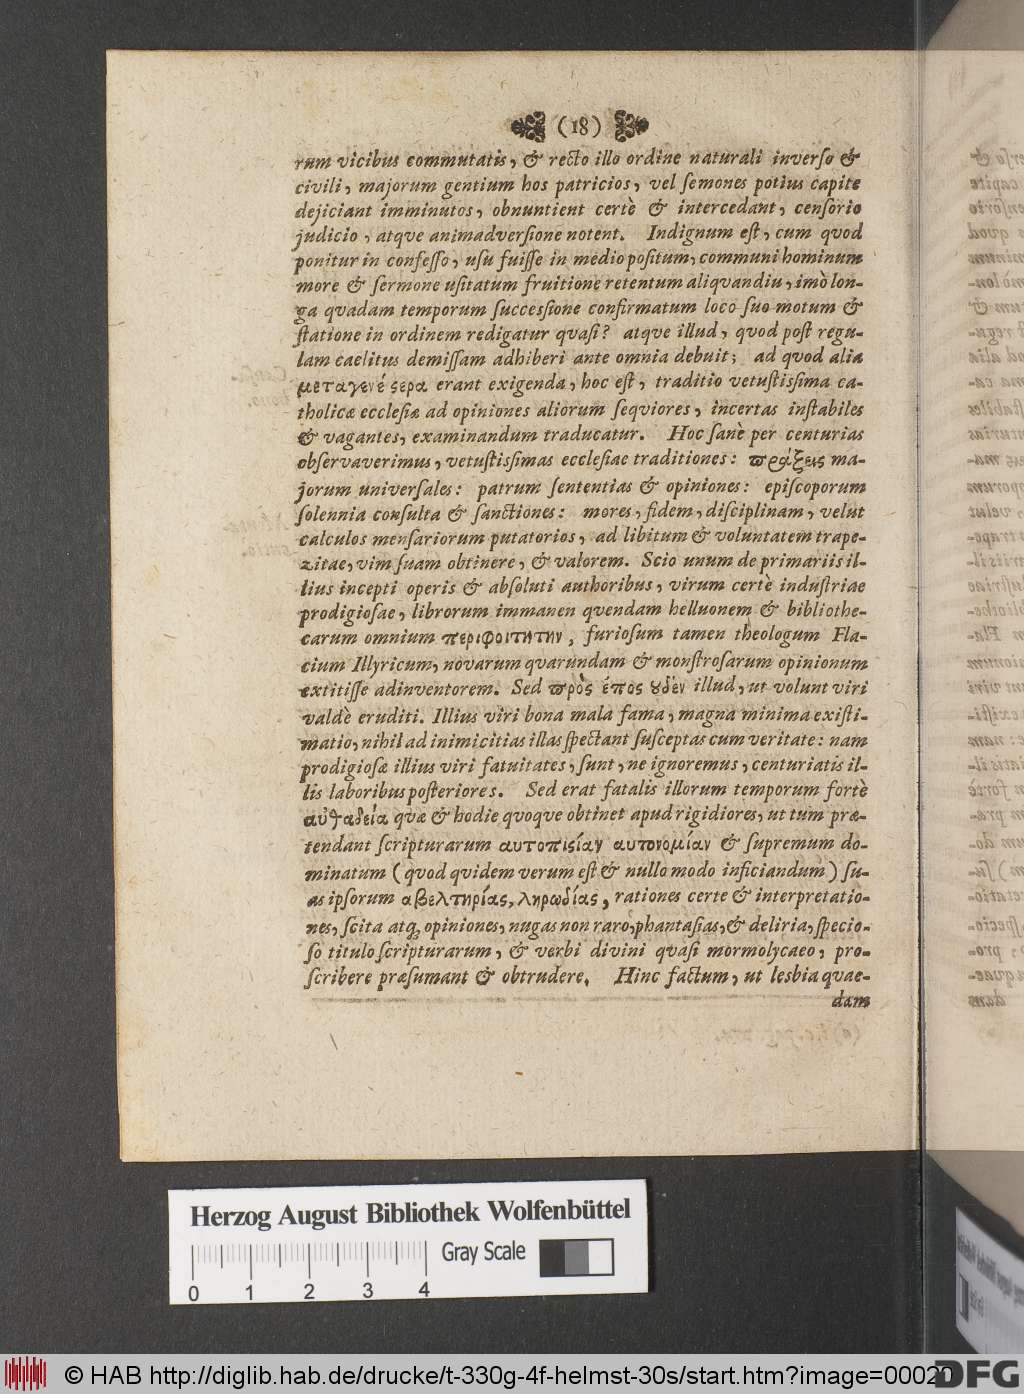 (18)
rum vicibus commutatis, & recto illo ordine naturali inverſo &
civili, majorum gentium hos patricios, vel ſemones potius capite
dejiciant imminutos, obnuntient certè & intercedant, cenſorio
judicio, atqve animadverſione notent. Indignum eſt, cum quod
ponitur in confeſſo, uſu fuiſſe in medio poſitum, communi hominum
more & ſermone uſitatum fruitione retentum aliqvandiu, imò lon-
ga quadam temporum ſucceſſione confirmatum loco ſuo motum &
ſtatione in ordinem redigatur qvaſi? atqve illud, quod poſt regu-
lam caelitus demiſſam adhiberi ante omnia debuit; ad quod alia
μεταγενέςερα erant exigenda, hoc eſt, traditio vetuſtiſsima ca-
tholicæ eccleſiæ ad opiniones aliorum ſeqviores, incertas inſtabiles
& vagantes, examinandum traducatur. Hoc ſanè per centurias
obſervaverimus, vetuſtiſsimas eccleſiae traditiones: πράξεις ma-
jorum univerſales: patrum ſententias & opiniones: epiſcoporum
ſolennia conſulta & ſanctiones: mores, fidem, diſciplinam, velut
calculos menſariorum putatorios, ad libitum & voluntatem trape-
zitae, vim ſuam obtinere, & valorem. Scio unum de primariis il-
lius incepti operis & abſoluti authoribus, virum certè induſtriae
prodigioſae, librorum immanen qvendam helluonem & bibliothe-
carum omnium περιφοιτητην, furioſum tamen theologum Fla-
cium Illyricum, novarum qvarundam & monſtroſarum opinionum
extitiſſe adinventorem. Sed πρὸς έπος ȣδὲν illud, ut volunt viri
valdè eruditi. Illius viri bona mala fama, magna minima exiſti-
matio, nihil ad inimicitias illas ſpectant ſuſceptas cum veritate: nam
prodigioſæ illius viri fatuitates, ſunt, ne ignoremus, centuriatis il-
lis laboribus poſteriores. Sed erat fatalis illorum temporum fortè
αὐθαδεία qvæ & hodie quoqve obtinet apud rigidiores, ut tum præ-
tendant ſcripturarum αυτοπιςίαν αυτονομίαν & ſupremum do-
minatum (quod qvidem verum eſt & nullo modo inficiandum) ſu-
as ipſorum αβελτηρίας, ληρωδίας, rationes certe & interpretatio-
nes, ſcita atq́; opiniones, nugas non rarò, phantaſias, & deliria, ſpecio-
ſo titulo ſcripturarum, & verbi divini qvaſi mormolycaeo, pro-
ſcribere præſumant & obtrudere. Hinc factum, ut lesbia quae-
dam
Herzog August Bibliothek Wolfenbüttel
Gray Scale
0 1 2 3 4
© HAB http://diglib.hab.de/drucke/t-330g-4f-helmst-30s/start.htm?image=00020
DFG